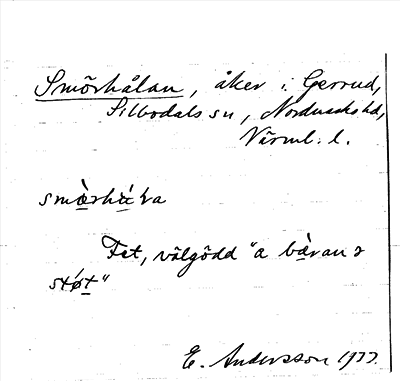 Smörhålan, åker i Gerrud,
Silbodals sn, Nordmarks hd,
Värml. l.
smæ̀rhɑ́ra
Fet, välgödd "a bæ̀ran ɔ
stǿt"
E. Andersson 1933